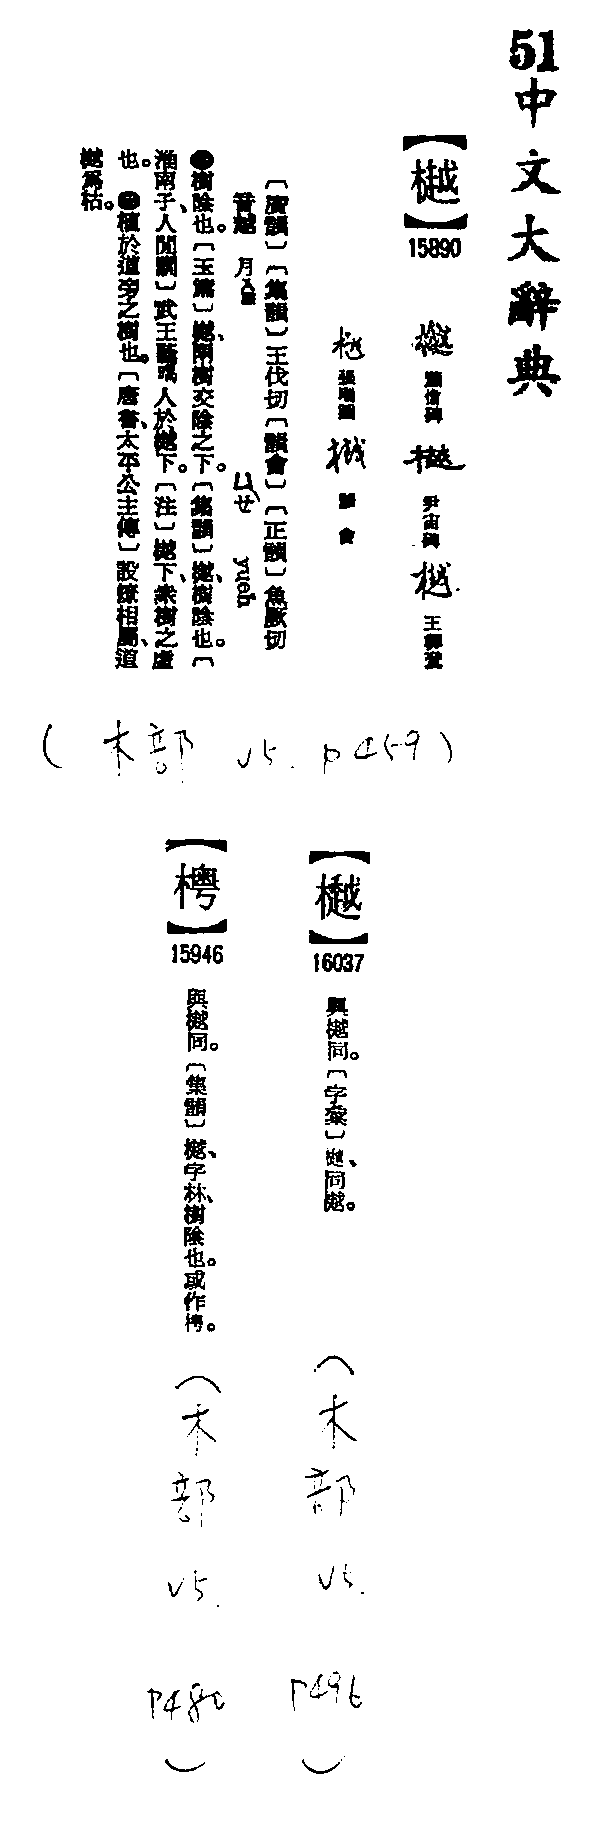 51
中文大辭典
【樾】
15890
尹宙碑
韻會
〔廣韻〕〔集韻〕王伐切〔韻會〕〔正韻〕魚厥切
音越 月入聲 ㄩㄝ yueh
●樹陰也。〔玉篇〕樾、兩樹交陰之下。〔集韻〕樾、樹陰也。〔
淮南子、人閒訓〕武王蔭暍人於樾下。〔注〕樾下、衆樹之虛
也。●植於道旁之樹也。〔唐書、太平公主傳〕設燎相屬、道
樾爲枯。
(木部 V5. p459)
【𣛰】
16037
與樾同。〔字彙〕同樾。
(木部 V5. P496)
【梬】
15946
與樾同。〔集韻〕樾、字林、樹陰也。或作
(木部 V5. P480)